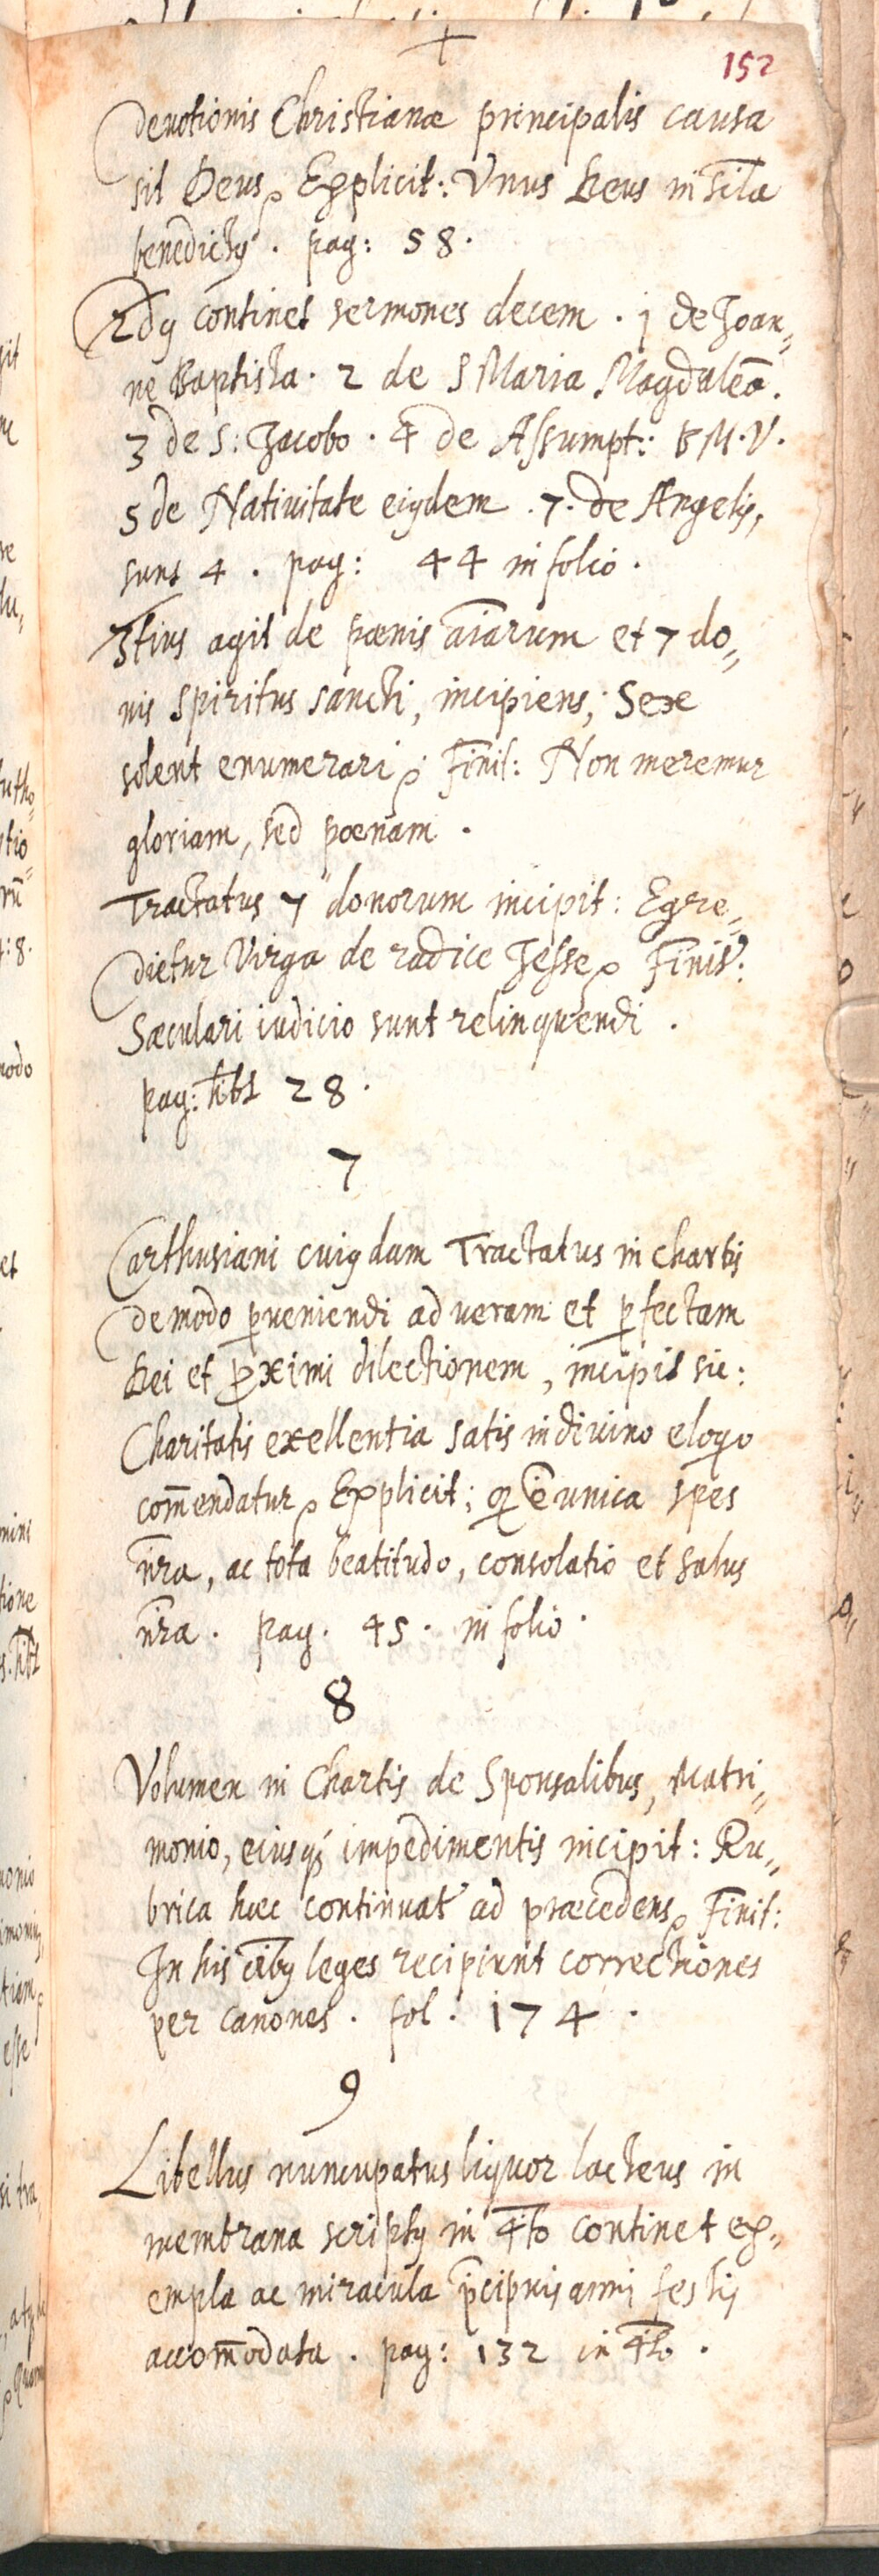 152
devotionis Christianæ principalis causa
sit Deus Explicit: Vnus Deus in sæcla
benedictus. pag: 58.
2dus continet sermones decem. 1 de Joan=
ne Baptista. 2 de S Maria Magdalēa.
3 de S: Jacobo. 4 de Assumpt: B M. V.
5 de Natiuitate eiusdem. 7. de Angelis,
sunt 4. pag: 44 in folio.
3tius agit de pœnis aīarum et 7 do=
nis spiritus sancti, incipiens, Sex
solent enumerari Finit: Non meremur
gloriam, sed pœnam.
Tractatus 7 donorum incipit: Egre=
dietur Virga de radice Jesse Finit:
Sæculari iudicio sunt relinquendi.
pag: hībt 28.
7
Carthusiani cuiusdam Tractatus in chartis
de modo pueniendi ad ueram et pfectam
Dei et pximi dilectionem, incipit sic:
Charitatis exellentia satis in diuino eloqo
com̄endatur Explicit; q ē unica spes
nr̄a, ac tota beatitudo, consolatio et salus
nr̄a. pag. 45. in folio.
8
Volumen in Chartis de Sponsalibus, Matri=
monio, eiusq; impedimentis incipit: Ru=
brica hæc continuat ad præcedens Finit:
In his leges recipiunt correctiones
per canones. fol. 174.
9
Libellus nuncupatus liquor lacteus in
membrana scriptus in 4to continet ex=
empla ac miracula p̄cipuis anni festis
accom̄odata. pag: 132 in 4to.